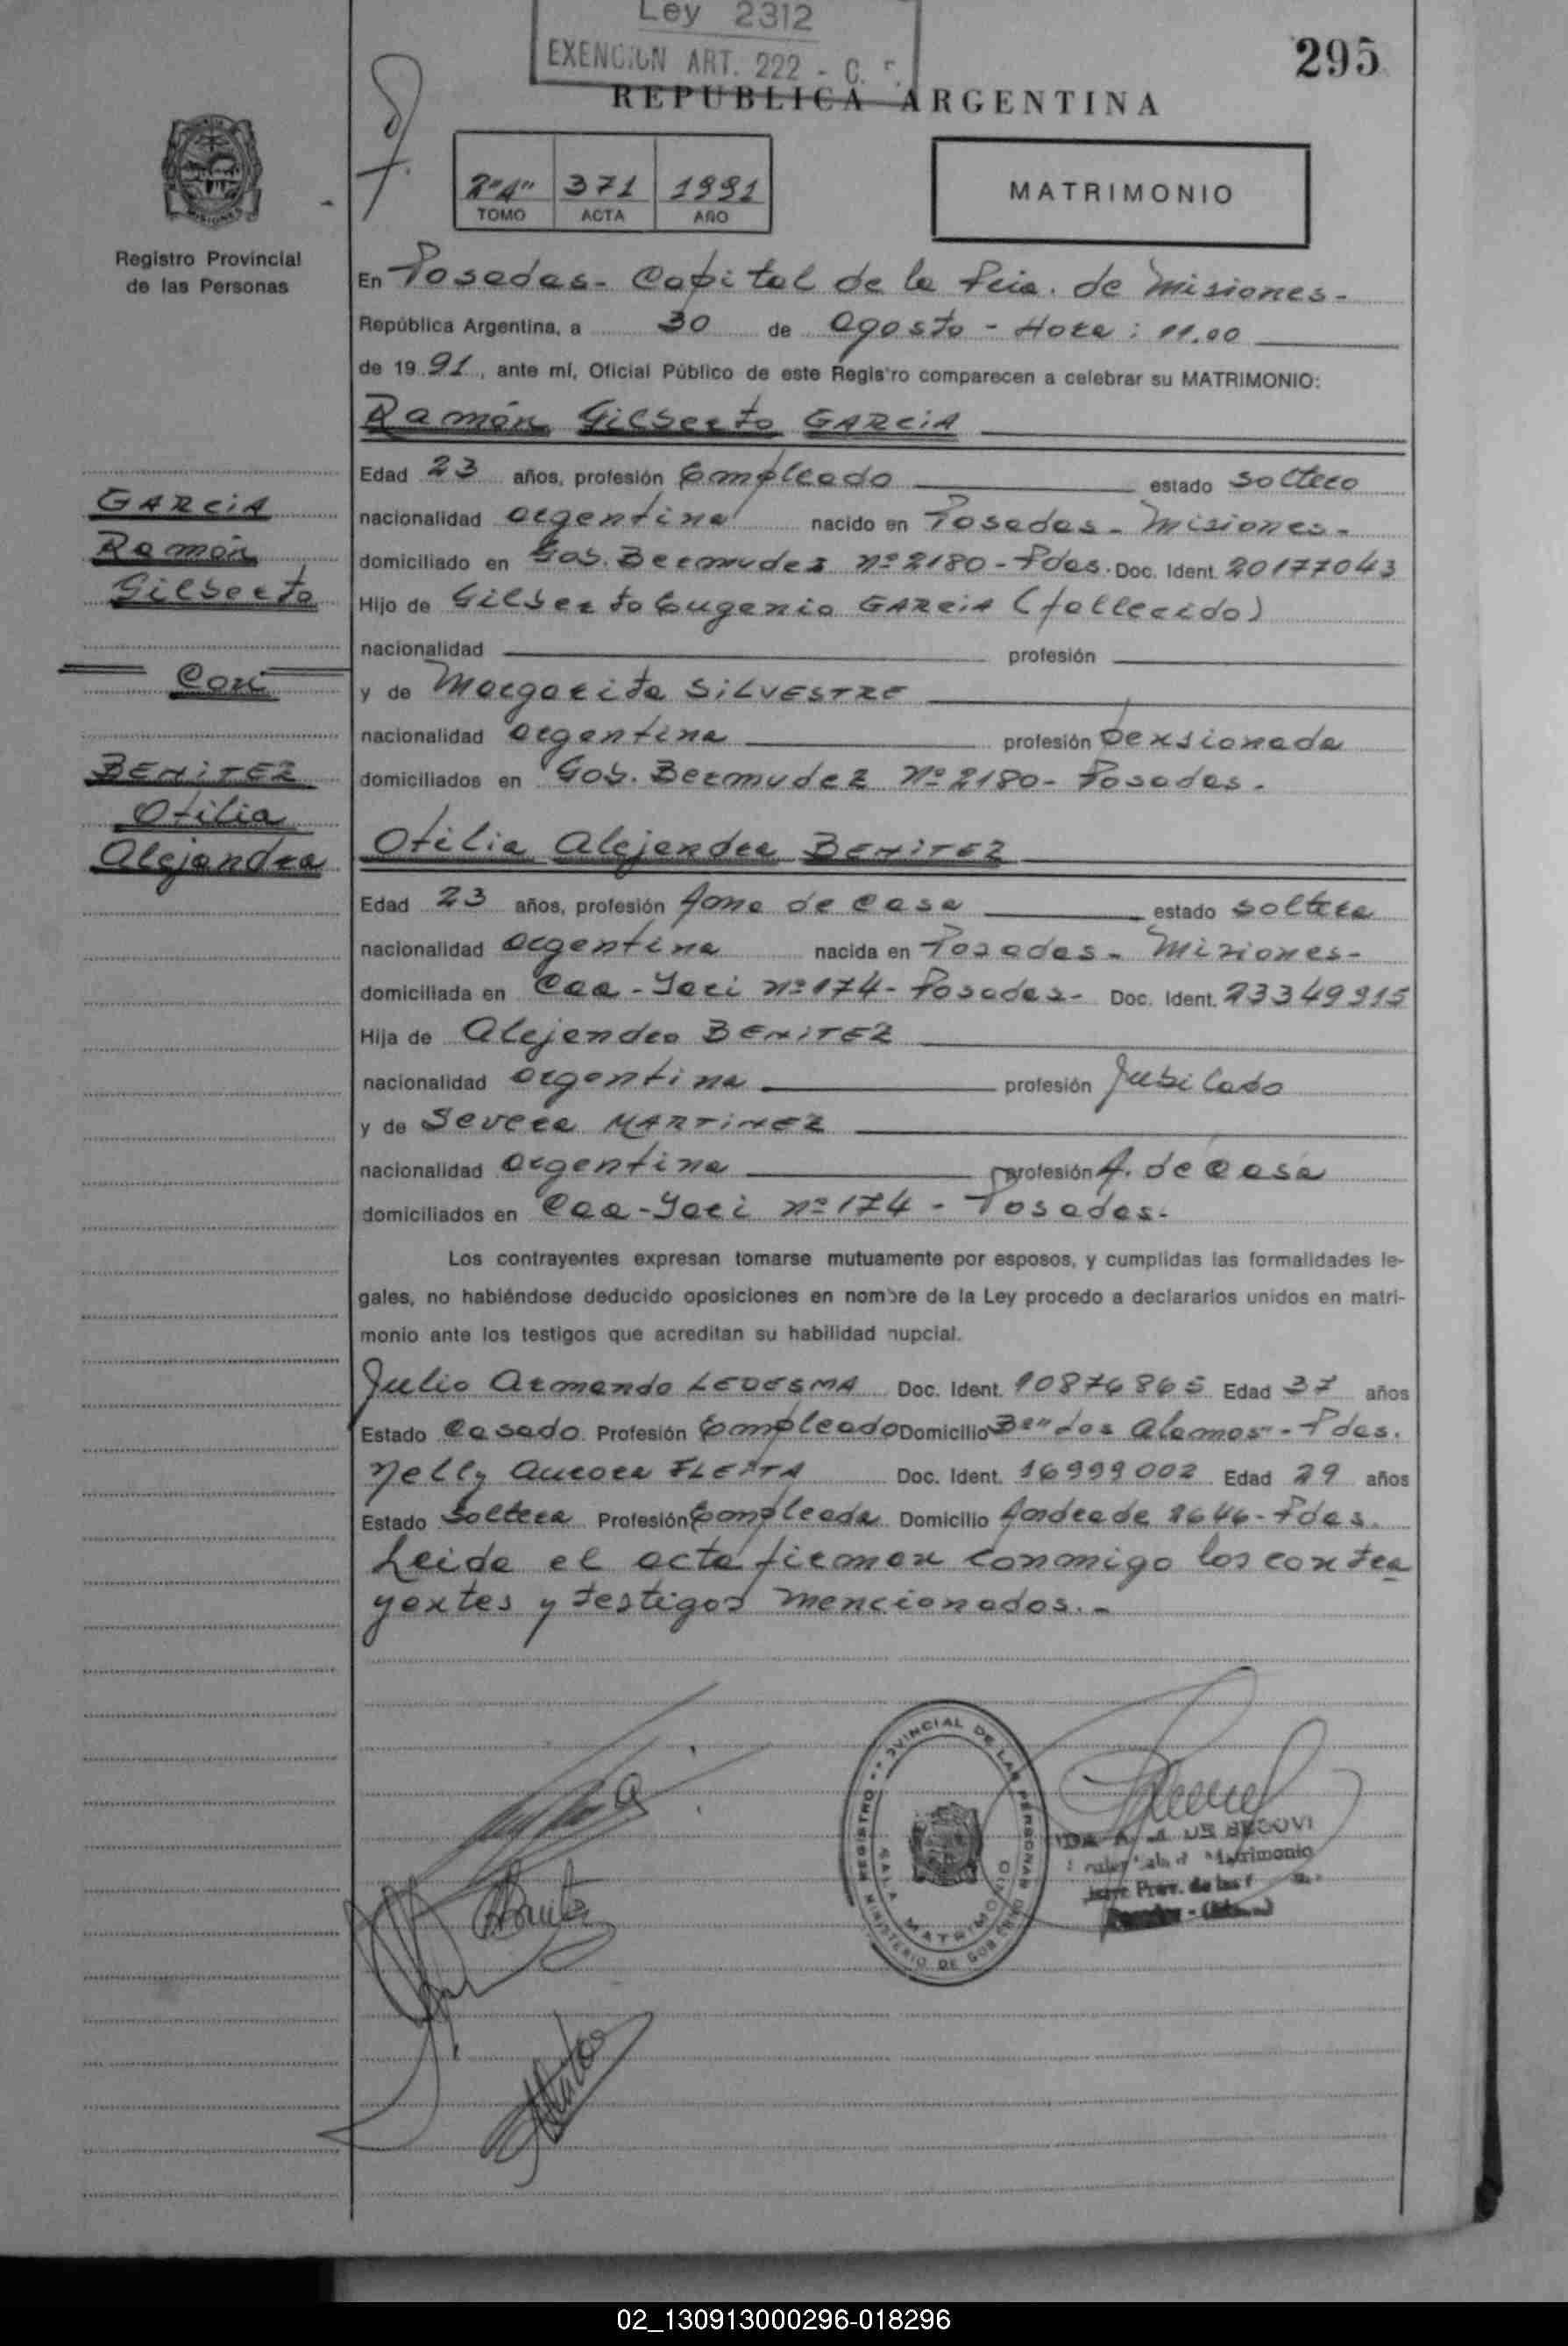 Ley 2312
EXENCION ART. 222 - C.
295
REPUBLICA ARGENTINA
2º"A" 371 1991
TOMO ACTA AÑO
MATRIMONIO
MISIONES
Registro Provincial
de las Personas
En Posadas - Capital de la Pcia. de Misiones -
República Argentina, a 30 de Agosto - Hora: 11.00
de 1991, ante mí, Oficial Público de este Registro comparecen a celebrar su MATRIMONIO:
Ramón Gilberto GARCIA
Edad 23 años, profesión Empleado estado soltero
GARCIA
nacionalidad argentina nacido en Posadas - Misiones -
Ramón
domiciliado en Gob. Bermudez nº 2180 - Pdas. Doc. Ident. 20177043
Gilberto
Hijo de Gilberto Eugenio GARCIA (fallecido)
nacionalidad profesión
Con
y de Margarita SILVESTRE
nacionalidad argentina profesión Pensionada
BENITEZ
domiciliados en Gob. Bermudez Nº 2180 - Posadas.
Otilia
Alejandra
Otilia Alejandra BENITEZ
Edad 23 años, profesión Ama de Casa estado soltera
nacionalidad argentina nacida en Posadas - Misiones -
domiciliada en Caa-Yari nº 174 - Posadas - Doc. Ident. 23349915
Hija de Alejandro BENITEZ
nacionalidad argentina profesión Jubilado
y de Severa MARTINEZ
nacionalidad argentina profesión A. de Casa
domiciliados en Caa-Yari nº 174 - Posadas.
Los contrayentes expresan tomarse mutuamente por esposos, y cumplidas las formalidades le-
gales, no habiéndose deducido oposiciones en nombre de la Ley procedo a declararlos unidos en matri-
monio ante los testigos que acreditan su habilidad nupcial.
Julio Armando LEDESMA Doc. Ident. 10876865 Edad 37 años
Estado Casado Profesión Empleado Domicilio Bº "Los Alamos" - Pdas.
Nelly Aurora FLEITA Doc. Ident. 16999002 Edad 29 años
Estado Soltera Profesión Empleada Domicilio Andrade 2646 - Pdas.
Leida el acta firman conmigo los contra
yentes y testigos mencionados. -
REGISTRO PROVINCIAL DE LAS PERSONAS
SALA MATRIMONIO
MINISTERIO DE GOBIERNO
DE SEGOVI
Matrimonio
Prov. de las
02_130913000296-018296